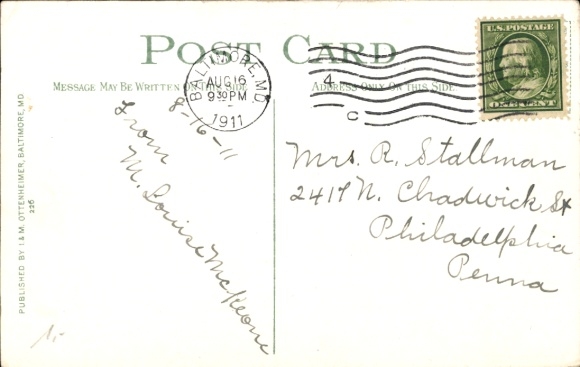 POST CARD
MESSAGE MAY BE WRITTEN ON THIS SIDE
ADDRESS ONLY ON THIS SIDE
BALTIMORE, MD.
AUG 16
9 30 PM
1911
4
C
U.S. POSTAGE
ONE CENT
8-16-11
From
M. Louise McKeone
Mrs. R. Stallman
2417 N. Chadwick St
Philadelphia
Penna
PUBLISHED BY I. & M. OTTENHEIMER, BALTIMORE, MD.
226